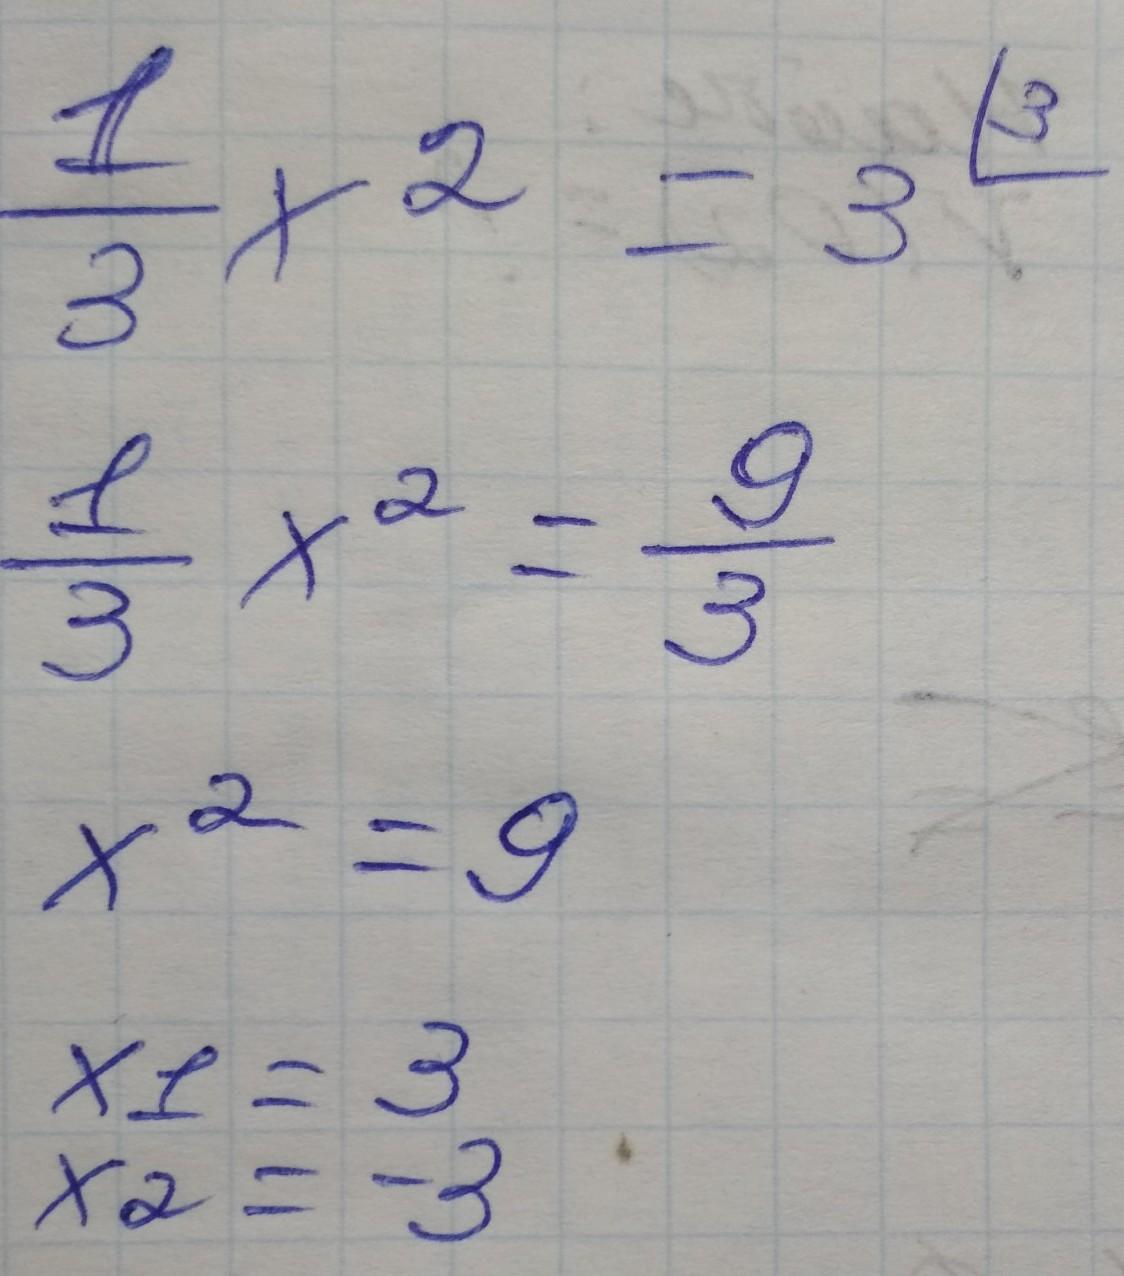 1/3 x² = 3 ⌊3
1/3 x² = 9/3
x² = 9
x1 = 3
x2 = -3